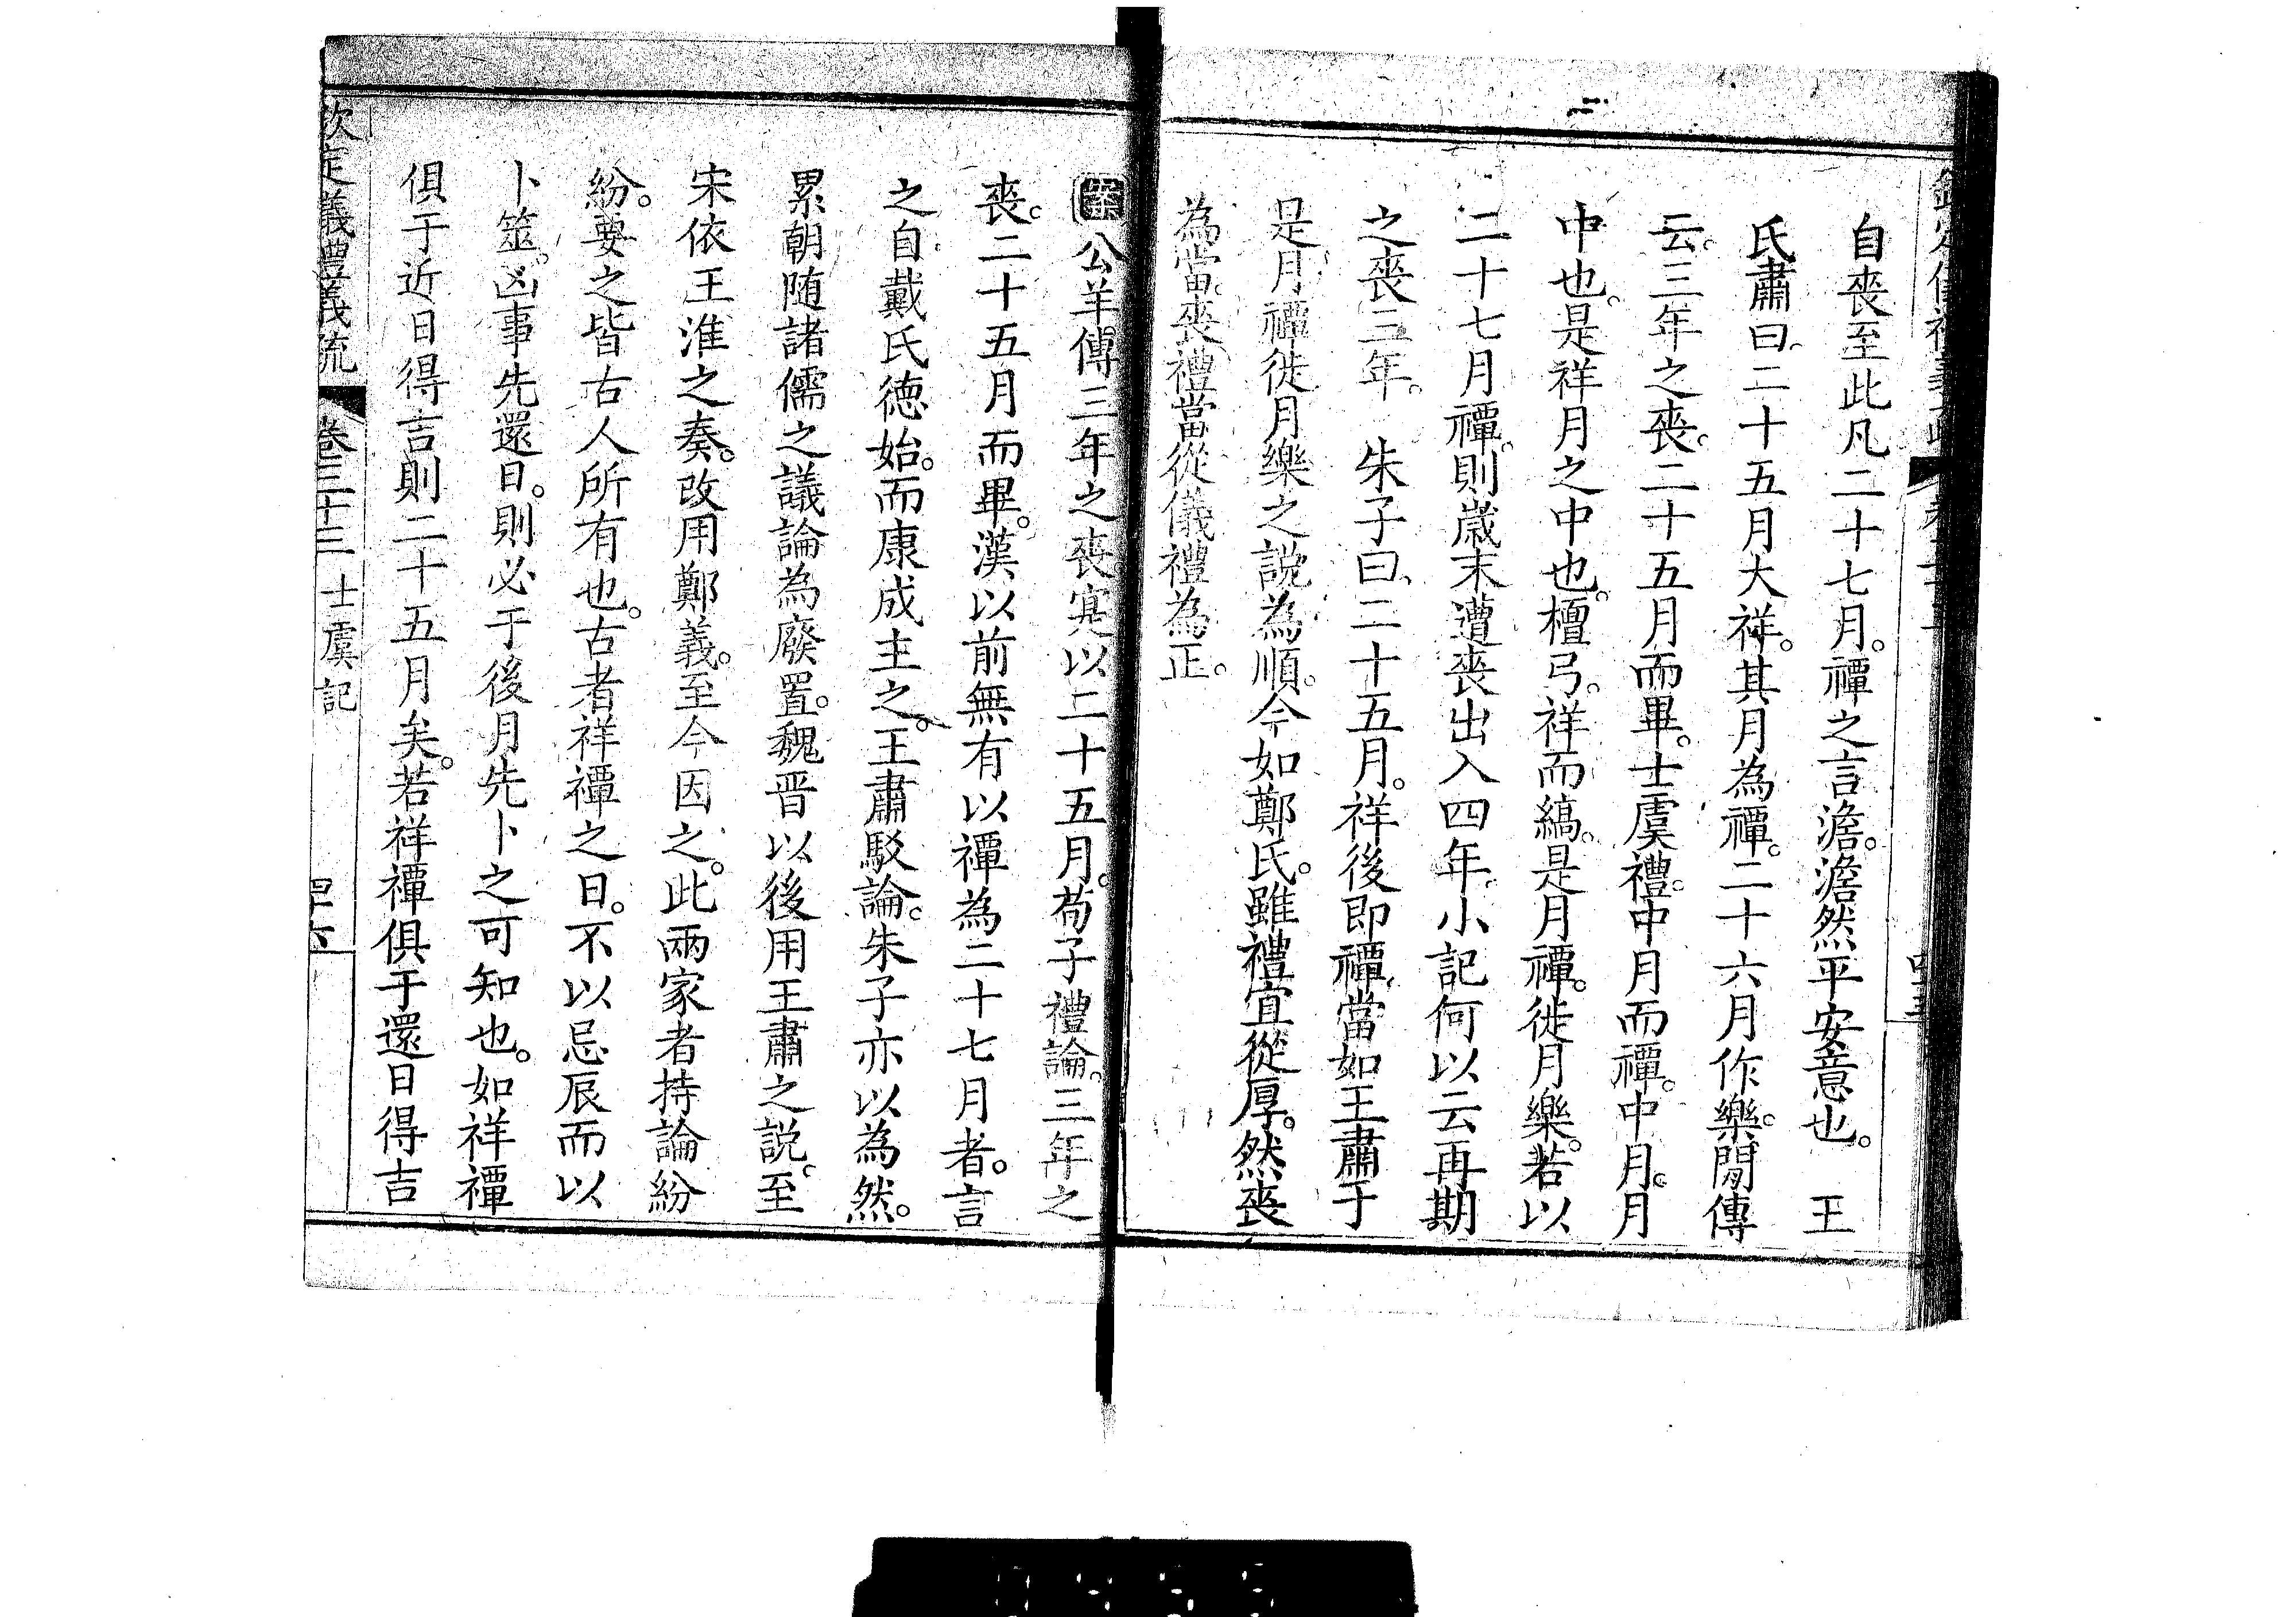 自喪至此凡二十七月。禫之言澹。澹然平安意也。 王
氏肅曰。二十五月大祥。其月為禫。二十六月作樂。閒傳
云。三年之喪。二十五月而畢。士虞禮。中月而禫。中月。月
中也。是祥月之中也。檀弓。祥而縞。是月禫。徙月樂。若以
二十七月禫。則歲末遭喪出入四年。小記何以云再期
之喪三年。 朱子曰、二十五月。祥後即禫。當如王肅于
是月禫徙月樂之說為順。今如鄭氏。雖禮宜從厚。然喪
為當。喪禮當從儀禮為正。
案公羊傳三年之喪。寔以二十五月。荀子禮論。三年之
喪。二十五月而畢。漢以前無有以禫為二十七月者。言
之自戴氏德始。而康成主之。王肅駁論。朱子亦以為然。
累朝随諸儒之議論為廢置。魏晋以後用王肅之說。至
宋依王淮之奏。改用鄭義。至今因之。此兩家者持論紛
紛。要之皆古人所有也。古者祥禫之日。不以忌辰而以
卜筮。凶事先還日。則必于後月先卜之可知也。如祥禫
俱于近日得言則二十五月矣。若祥禫俱于還日得吉
欽定儀禮義疏 卷三十三 士虞記 四六